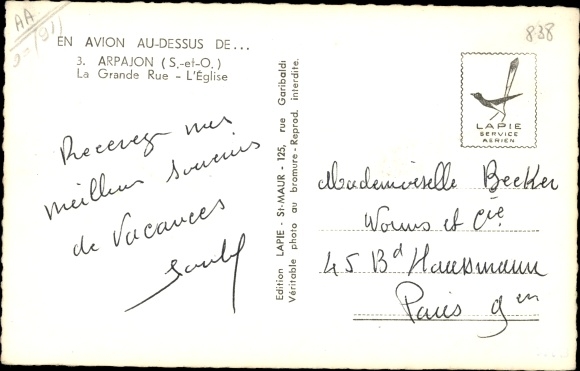 AA
91
838
EN AVION AU-DESSUS DE...
3. ARPAJON (S.-et-O.)
La Grande Rue - L'Église
Recevez mes
meilleurs souvenirs
de Vacances
Edition LAPIE - St-MAUR - 125, rue Garibaldi
Véritable photo au bromure - Reprod. interdite.
LAPIE
SERVICE
AERIEN
Mademoiselle Becker
Worms et Cie
45 Bd Haussmann
Paris 9em